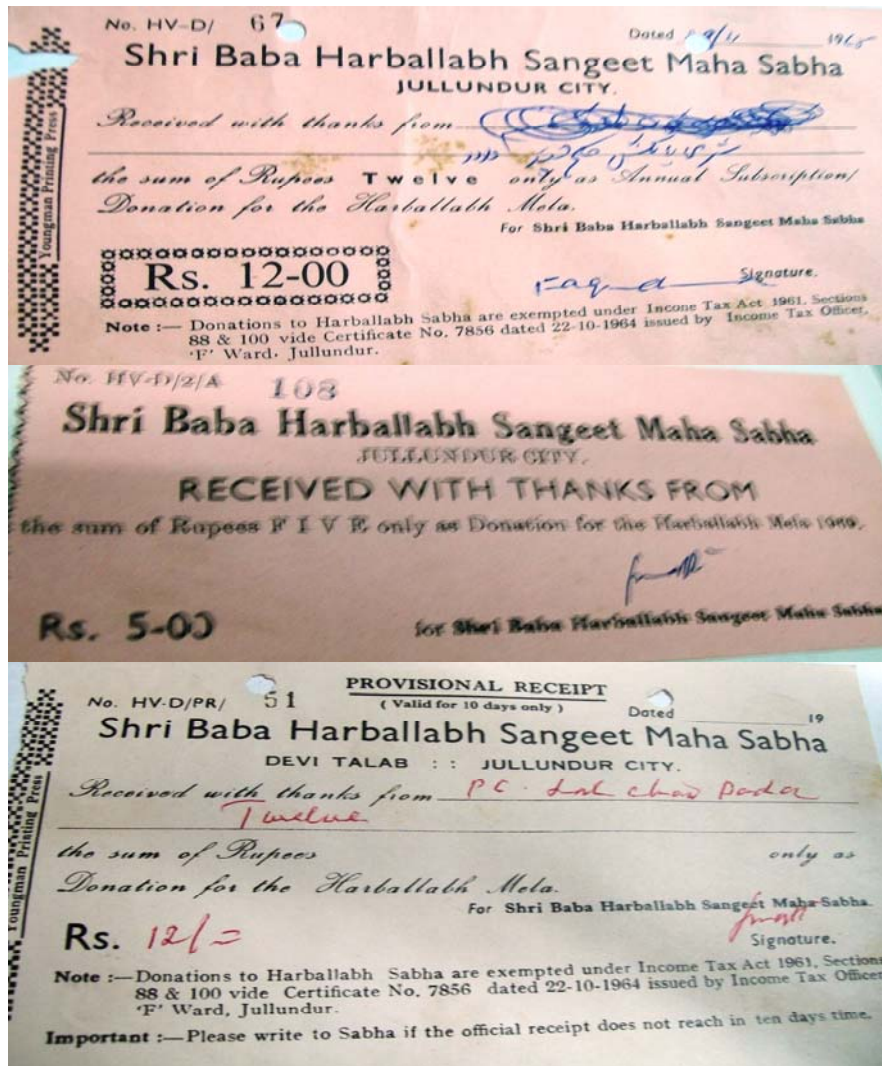 No. HV-D/ 67
Dated 29/11 1965
Shri Baba Harballabh Sangeet Maha Sabha
JULLUNDUR CITY.
Received with thanks from
the sum of Rupees Twelve only as Annual Subscription/
Donation for the Harballabh Mela.
For Shri Baba Harballabh Sangeet Maha Sabha
Rs. 12-00
Signature.
Note :— Donations to Harballabh Sabha are exempted under Income Tax Act 1961, Sections
88 & 100 vide Certificate No. 7856 dated 22-10-1964 issued by Income Tax Officer,
'F' Ward, Jullundur.
Youngman Printing Press
No. HV-D/2/A 108
Shri Baba Harballabh Sangeet Maha Sabha
JULLUNDUR CITY.
RECEIVED WITH THANKS FROM
the sum of Rupees F I V E only as Donation for the Harballabh Mela 1969.
Rs. 5-00
for Shri Baba Harballabh Sangeet Maha Sabha
PROVISIONAL RECEIPT
No. HV-D/PR/ 51
( Valid for 10 days only )
Dated 19
Shri Baba Harballabh Sangeet Maha Sabha
DEVI TALAB : : JULLUNDUR CITY.
Received with thanks from P C.
Twelve
the sum of Rupees only as
Donation for the Harballabh Mela.
For Shri Baba Harballabh Sangeet Maha Sabha.
Rs. 12/=
Signature.
Note :—Donations to Harballabh Sabha are exempted under Income Tax Act 1961, Sections
88 & 100 vide Certificate No. 7856 dated 22-10-1964 issued by Income Tax Officer
'F' Ward, Jullundur.
Important :—Please write to Sabha if the official receipt does not reach in ten days time.
Youngman Printing Press